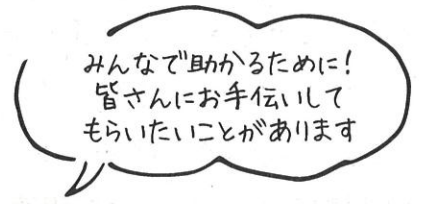 みんなで助かるために!
皆さんにお手伝いして
もらいたいことがあります